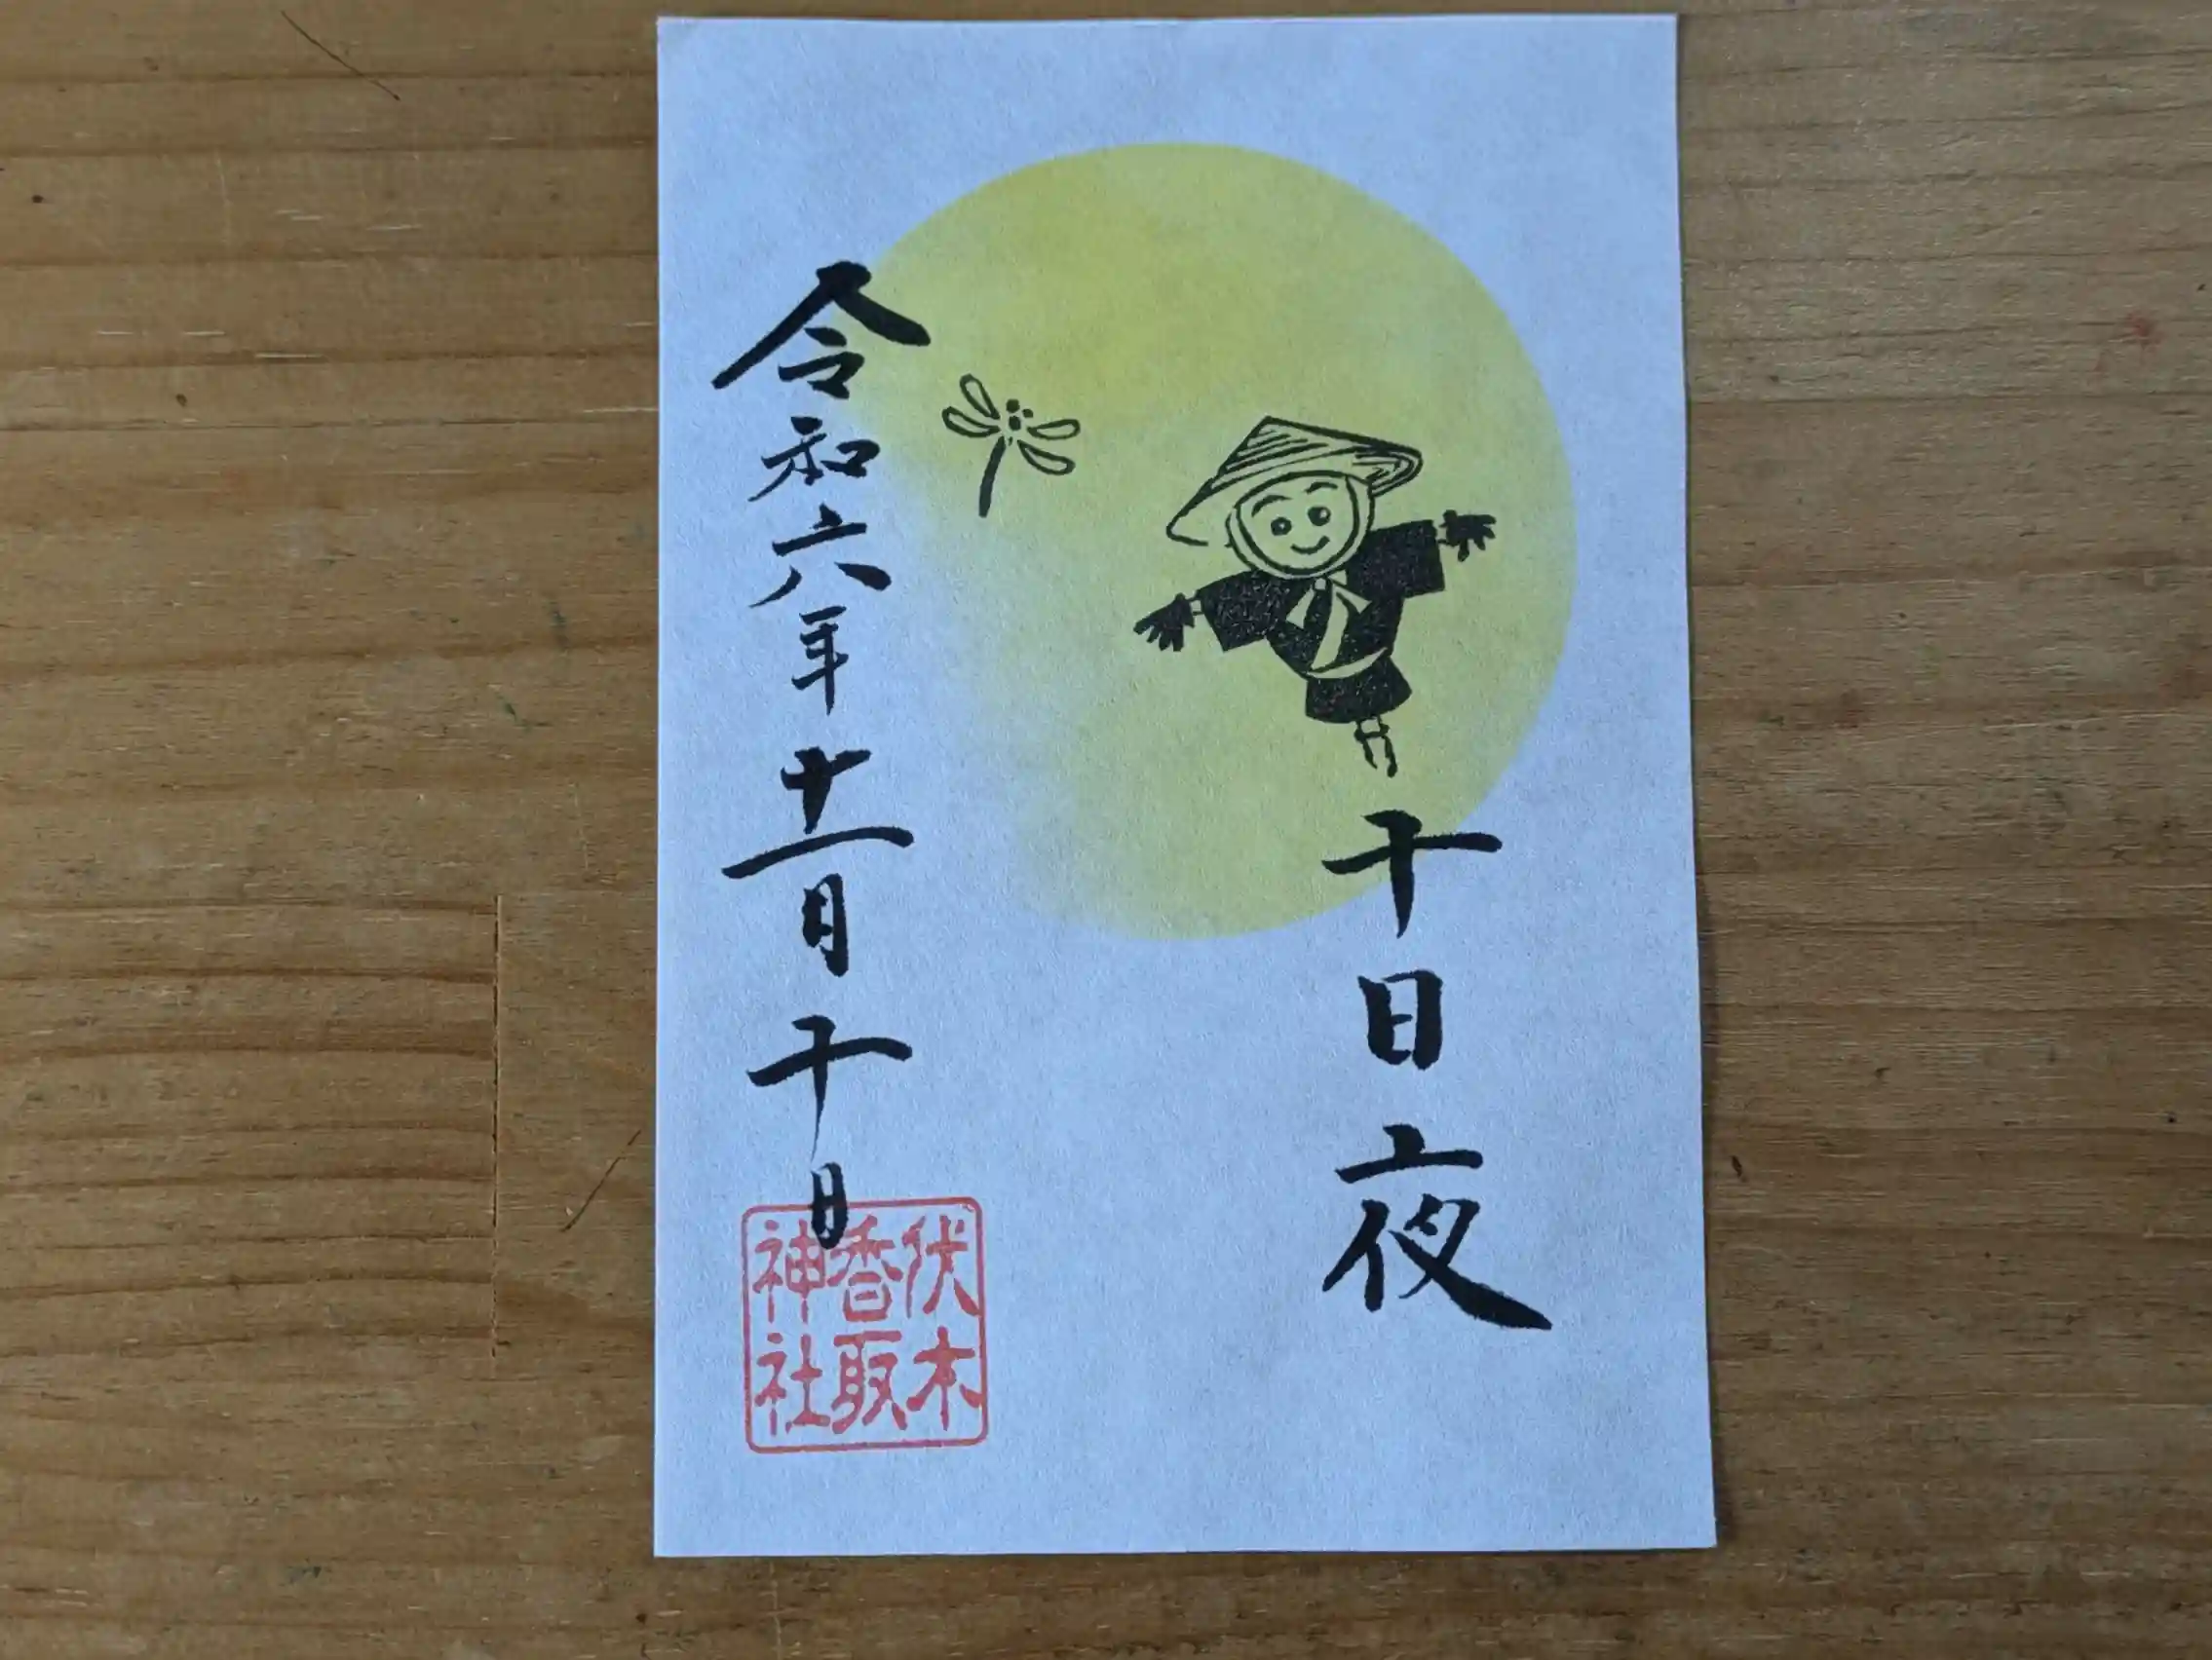 十日夜
令和六年十一月十日
伏木
香取
神社